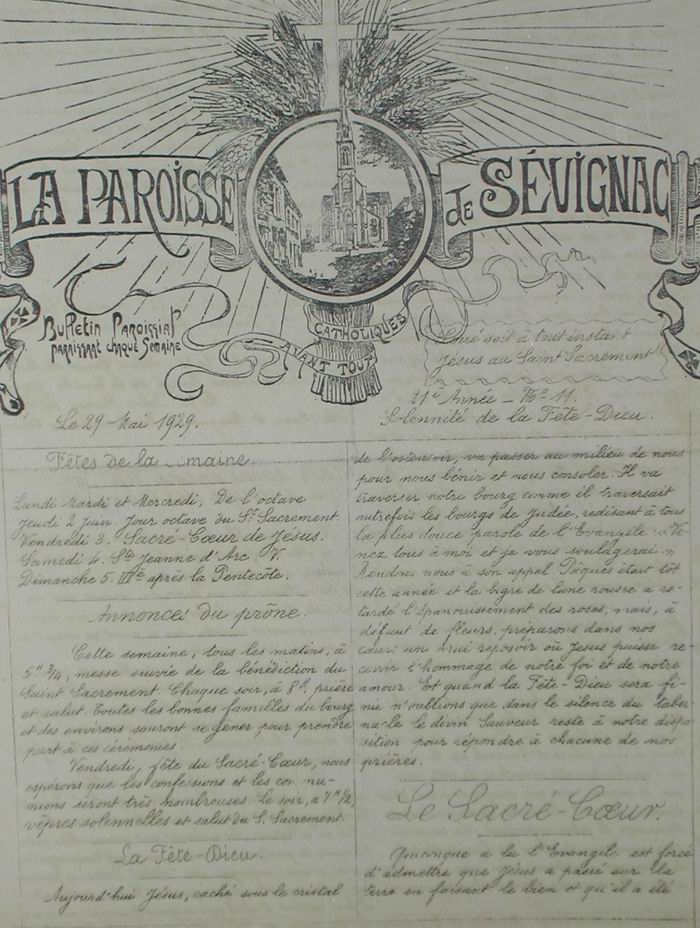 LA PAROISSE
DE SÉVIGNAC
Bulletin Paroissial
paraissant chaque Semaine
CATHOLIQUES
AVANT TOUT
Loué soit à tout instant
Jésus au Saint Sacrement
21e Année - No 11.
Le 29 Mai 1929.
Solennité de la Fête-Dieu.
Fêtes de la maine.
Lundi Mardi et Mercredi, De l'octave
Jeudi 2 Juin Jour octave du St Sacrement
Vendredi 3. Sacré-Cœur de Jésus.
Samedi 4. Ste Jeanne d'Arc V.
Dimanche 5. IIIe après la Pentecôte.
Annonces du prône.
Cette semaine, tous les matins, à
5h 3/4, messe suivie de la bénédiction du
Saint Sacrement. Chaque soir, à 8h, prière
et salut. Toutes les bonnes familles du bourg
et des environs sauront se gêner pour prendre
part à ces cérémonies.
Vendredi, fête du Sacré-Cœur, nous
espérons que les confessions et les com nu-
nions seront très nombreuses. Le soir, à 7h 1/2,
vêpres solennelles et salut du S. Sacrement.
La Fête-Dieu.
Aujourd'hui Jésus, caché sous le cristal
de l'ostensoir, va passer au milieu de nous
pour nous bénir et nous consoler. Il va
traverser notre bourg comme il traversait
autrefois les bourgs de Judée, redisant à tous
la plus douce parole de l'Evangile : "Ve-
nez tous à moi et je vous soulagerai."
Rendons nous à son appel. Pâques était tôt
cette année et la bigre de lune rousse a re-
tardé l'épanouissement des roses, mais, à
défaut de fleurs, préparons dans nos
cœurs un vrai reposoir où Jésus puisse re-
cevoir l'hommage de notre foi et de notre
amour. Et quand la Fête-Dieu sera fi-
nie n'oublions que dans le silence du taber
nacle le divin Sauveur reste à notre dispo-
sition pour répondre à chacune de nos
prières.
Le Sacré-Cœur.
Quiconque a lu l'Evangile est forcé
d'admettre que Jésus a passé sur la
terre en faisant le bien et qu'il a été